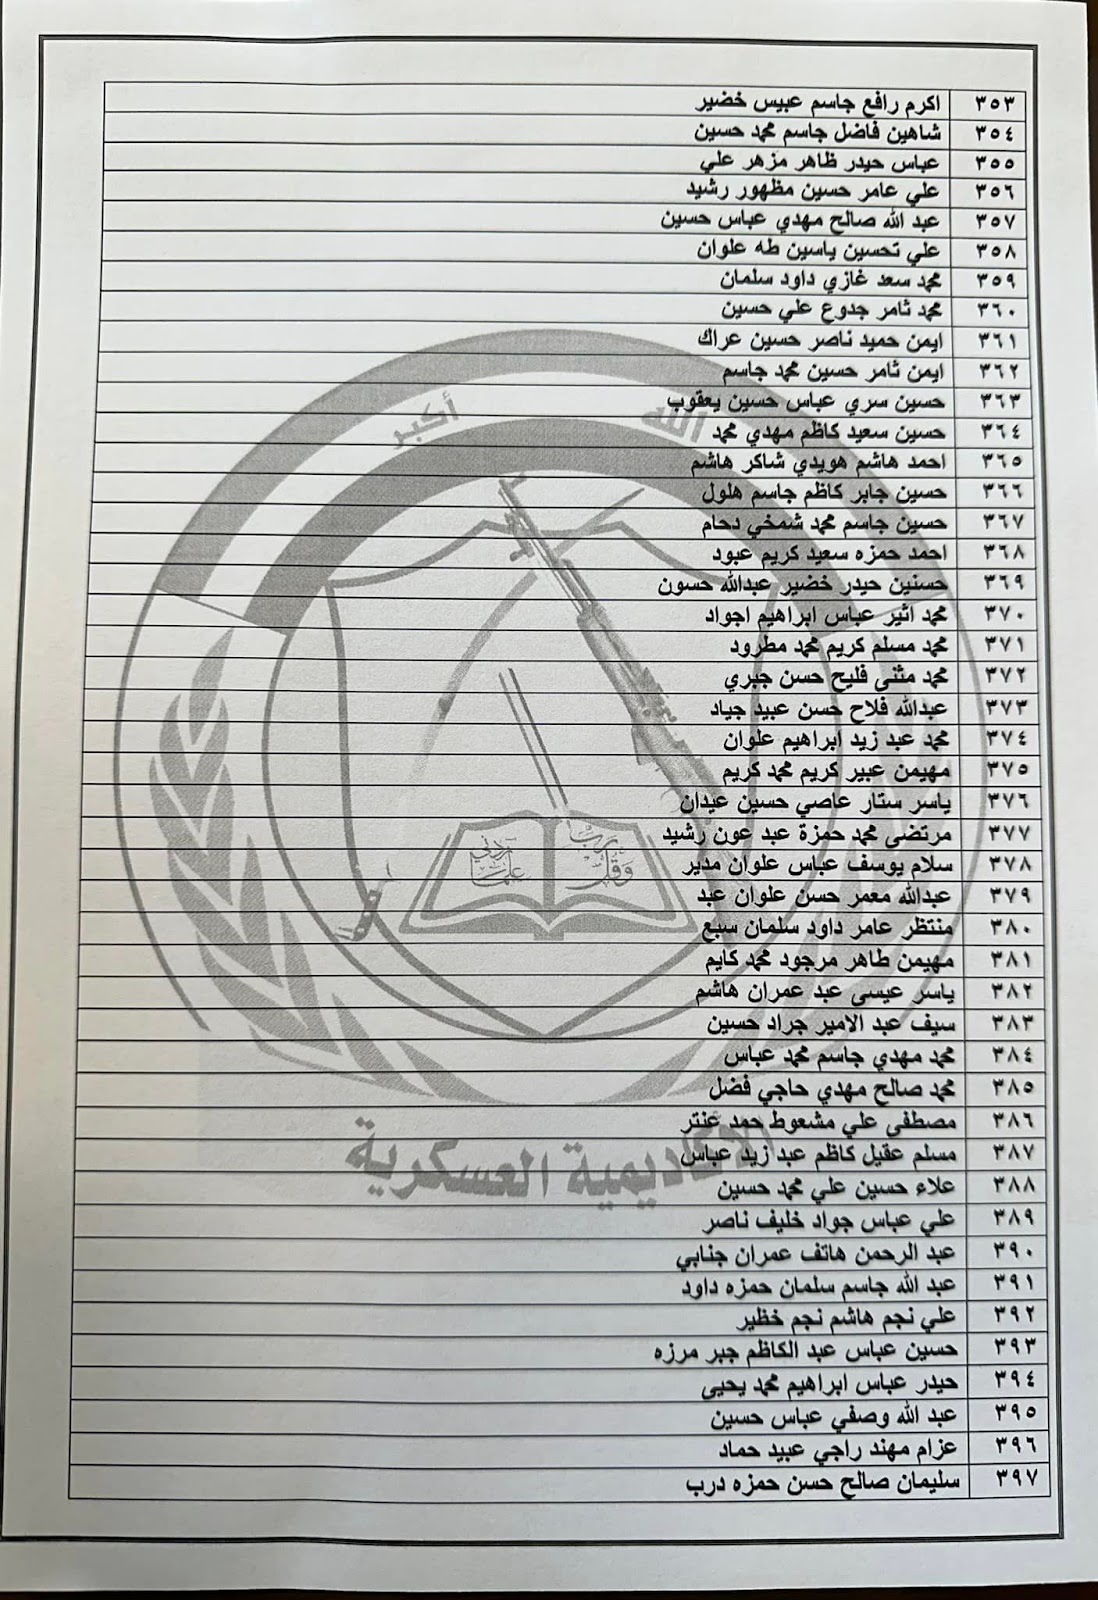 ٣٥٣ اكرم رافع جاسم عبيس خضير
٣٥٤ شاهين فاضل جاسم محمد حسين
٣٥٥ عباس حيدر ظاهر مزهر علي
٣٥٦ علي عامر حسين مظهور رشيد
٣٥٧ عبد الله صالح مهدي عباس حسين
٣٥٨ علي تحسين ياسين طه علوان
٣٥٩ محمد سعد غازي داود سلمان
٣٦٠ محمد ثامر جدوع علي حسين
٣٦١ ايمن حميد ناصر حسين عراك
٣٦٢ ايمن ثامر حسين محمد جاسم
٣٦٣ حسين سري عباس حسين يعقوب
٣٦٤ حسين سعيد كاظم مهدي محمد
٣٦٥ احمد هاشم هويدي شاكر هاشم
٣٦٦ حسين جابر كاظم جاسم هلول
٣٦٧ حسين جاسم محمد شمخي دحام
٣٦٨ احمد حمزه سعيد كريم عبود
٣٦٩ حسنين حيدر خضير عبدالله حسون
٣٧٠ محمد اثير عباس ابراهيم اجواد
٣٧١ محمد مسلم كريم محمد مطرود
٣٧٢ محمد مثنى فليح حسن جبري
٣٧٣ عبدالله فلاح حسن عبيد جياد
٣٧٤ محمد عبد زيد ابراهيم علوان
٣٧٥ مهيمن عبير كريم محمد كريم
٣٧٦ ياسر ستار عاصي حسين عيدان
٣٧٧ مرتضى محمد حمزة عبد عون رشيد
٣٧٨ سلام يوسف عباس علوان مدير
٣٧٩ عبدالله معمر حسن علوان عبد
٣٨٠ منتظر عامر داود سلمان سبع
٣٨١ مهيمن طاهر مرجود محمد كايم
٣٨٢ ياسر عيسى عبد عمران هاشم
٣٨٣ سيف عبد الامير جراد حسين
٣٨٤ محمد مهدي جاسم محمد عباس
٣٨٥ محمد صالح مهدي حاجي فضل
٣٨٦ مصطفى علي مشعوط حمد عنتر
٣٨٧ مسلم عقيل كاظم عبد زيد عباس
٣٨٨ علاء حسين علي محمد حسين
٣٨٩ علي عباس جواد خليف ناصر
٣٩٠ عبد الرحمن هاتف عمران جنابي
٣٩١ عبد الله جاسم سلمان حمزه داود
٣٩٢ علي نجم هاشم نجم خظير
٣٩٣ حسين عباس عبد الكاظم جبر مرزه
٣٩٤ حيدر عباس ابراهيم محمد يحيى
٣٩٥ عبد الله وصفي عباس حسين
٣٩٦ عزام مهند راجي عبيد حماد
٣٩٧ سليمان صالح حسن حمزه درب
الله أكبر
وقل رب زدني علما
الاكاديمية العسكرية